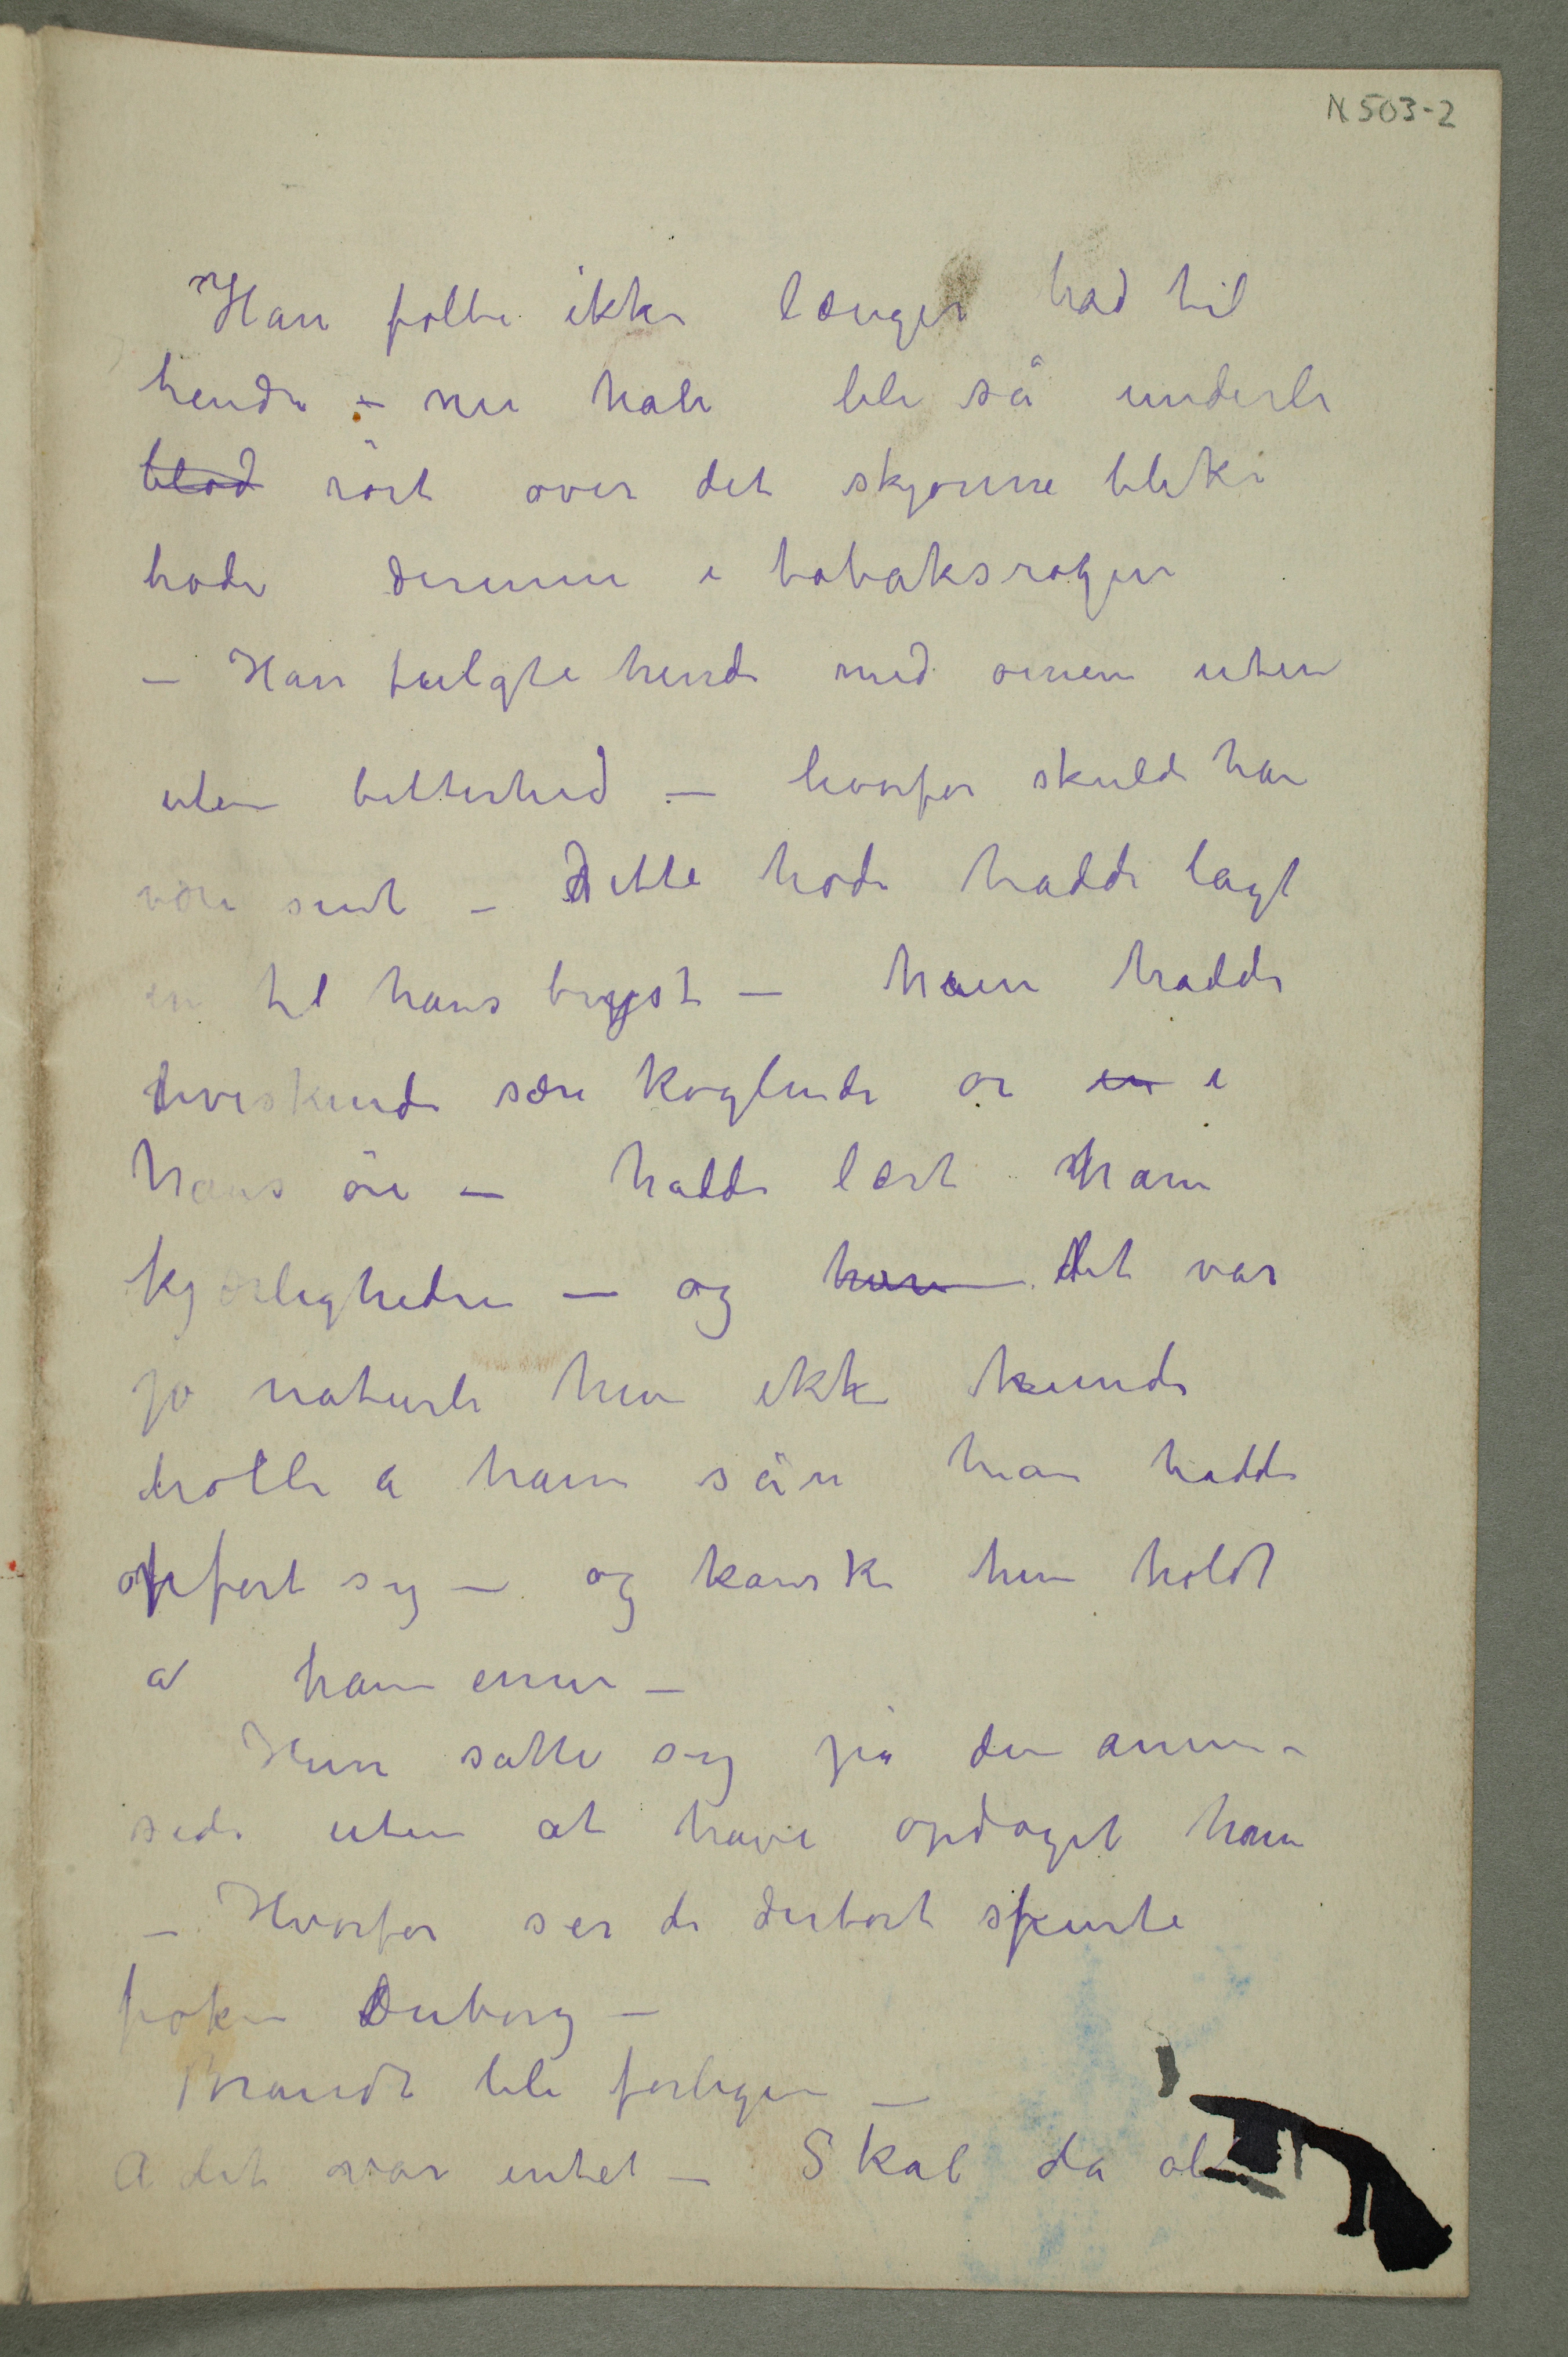 N 503-2
Han følte ikke længer had til
hende – nu han ble så underli
blød rört over det skjønne bleke
hode derinne i tobaksrøgen
– Han fulgte hende med øinene uten
uten bitterhed – hvorfor skulde han
være sint – Dette hode hadde lagt
en til hans bryst – ham hadde
hviskende søre koglende or en i
hans öre – hadde lært ham
kjærligheden – og han det var
jo naturli hun ikke kunde
holde a ham sån han hadde
opført sig – og kanske hun holdt
a ham ennu –
Hun satte sig på den annen
side uten at have opdaget ham
– Hvorfor ser de derbort spurte
frøken Duborg –
Brandt ble forlegen –
A det var intet – Skal da